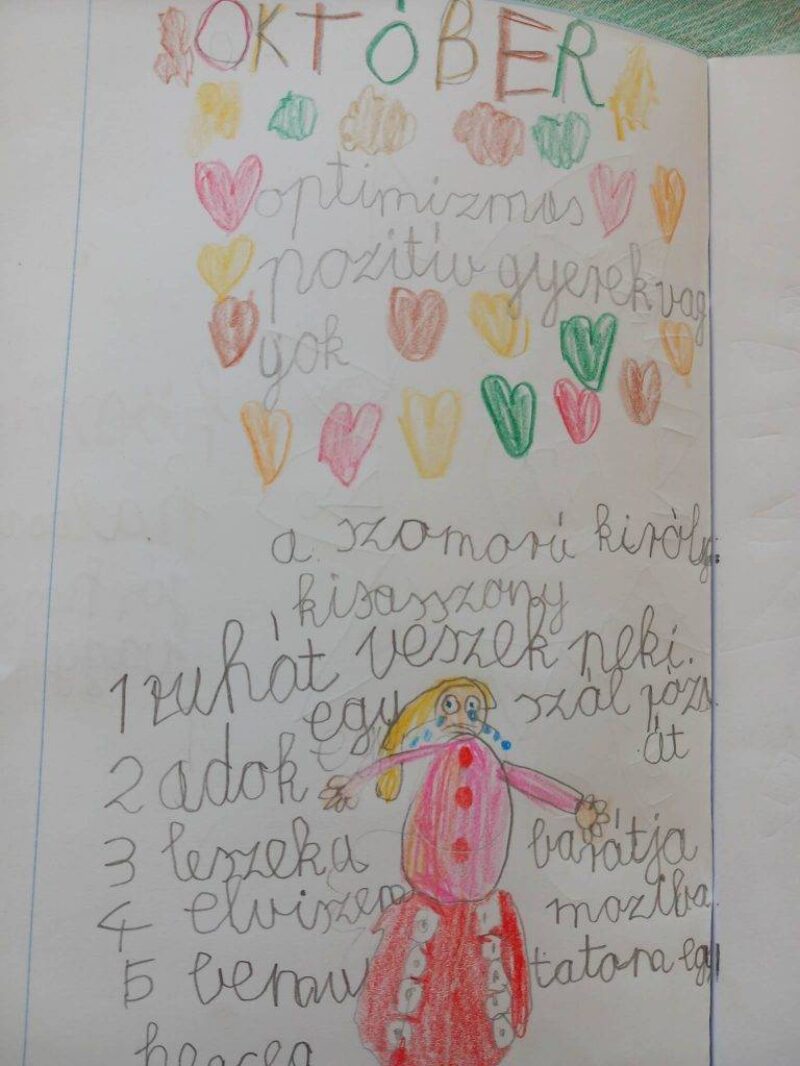 OKTÓBER
optimizmus
pozitív gyerek vag
yok
a szomorú király
kisasszony
1 ruhát veszek neki.
egy szál rózs
át
2 adok
3 leszek a barátja
4 elviszem moziba
5 tatom egy